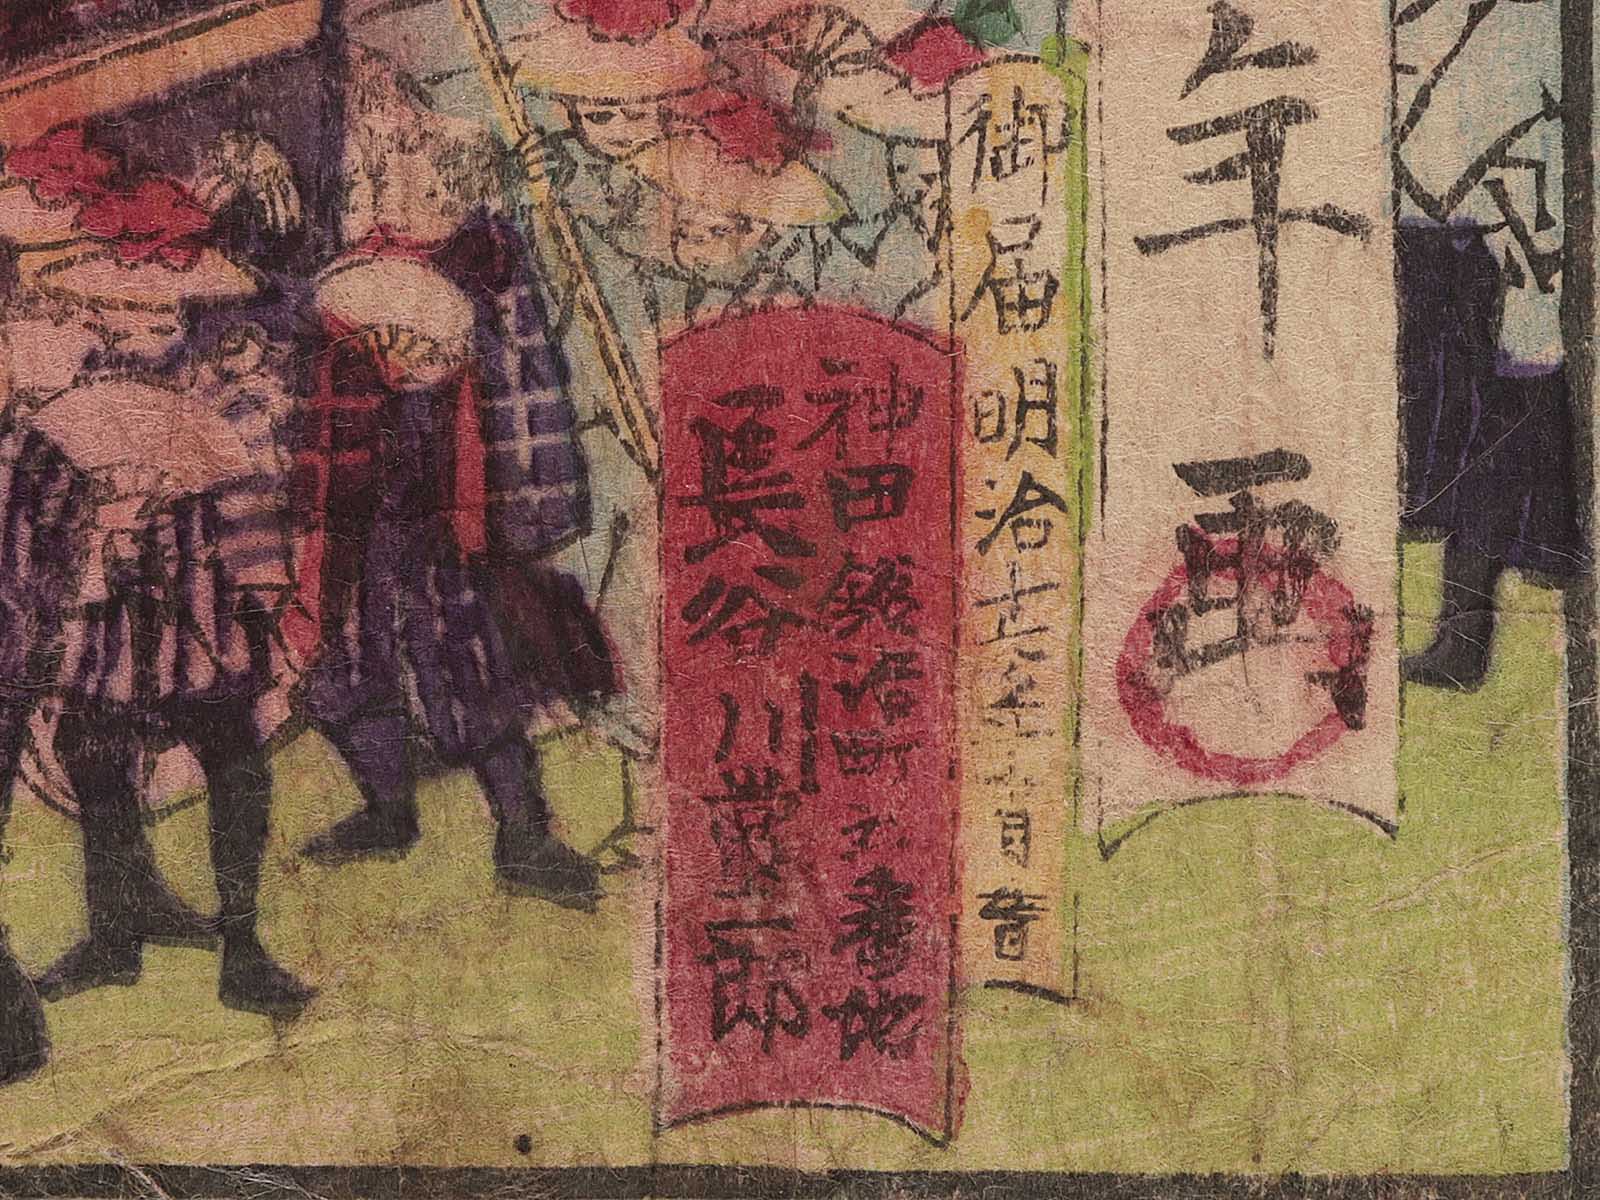 年画
御届明治十六年 月
神田鍛冶町 番地
長谷川常二郎